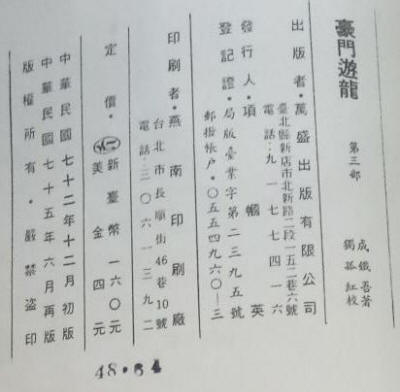 豪門遊龍
第三部
成鐵吾著
獨孤紅校
出版者•萬盛出版有限公司
臺北縣新店市北新路二段一五二巷六號
電話：九一七七四一六
發行人•項幗英
登記證•局版臺業字第二三九五號
郵撥帳戶•〇五五四九六〇—三
印刷者•燕南印刷廠
台北市長順街46巷10號
電話：三〇六一三九二
定價•新臺幣一六〇元
美金四元
中華民國七十二年十二月初版
中華民國七十五年六月再版
版權所有•嚴禁盜印
48•64